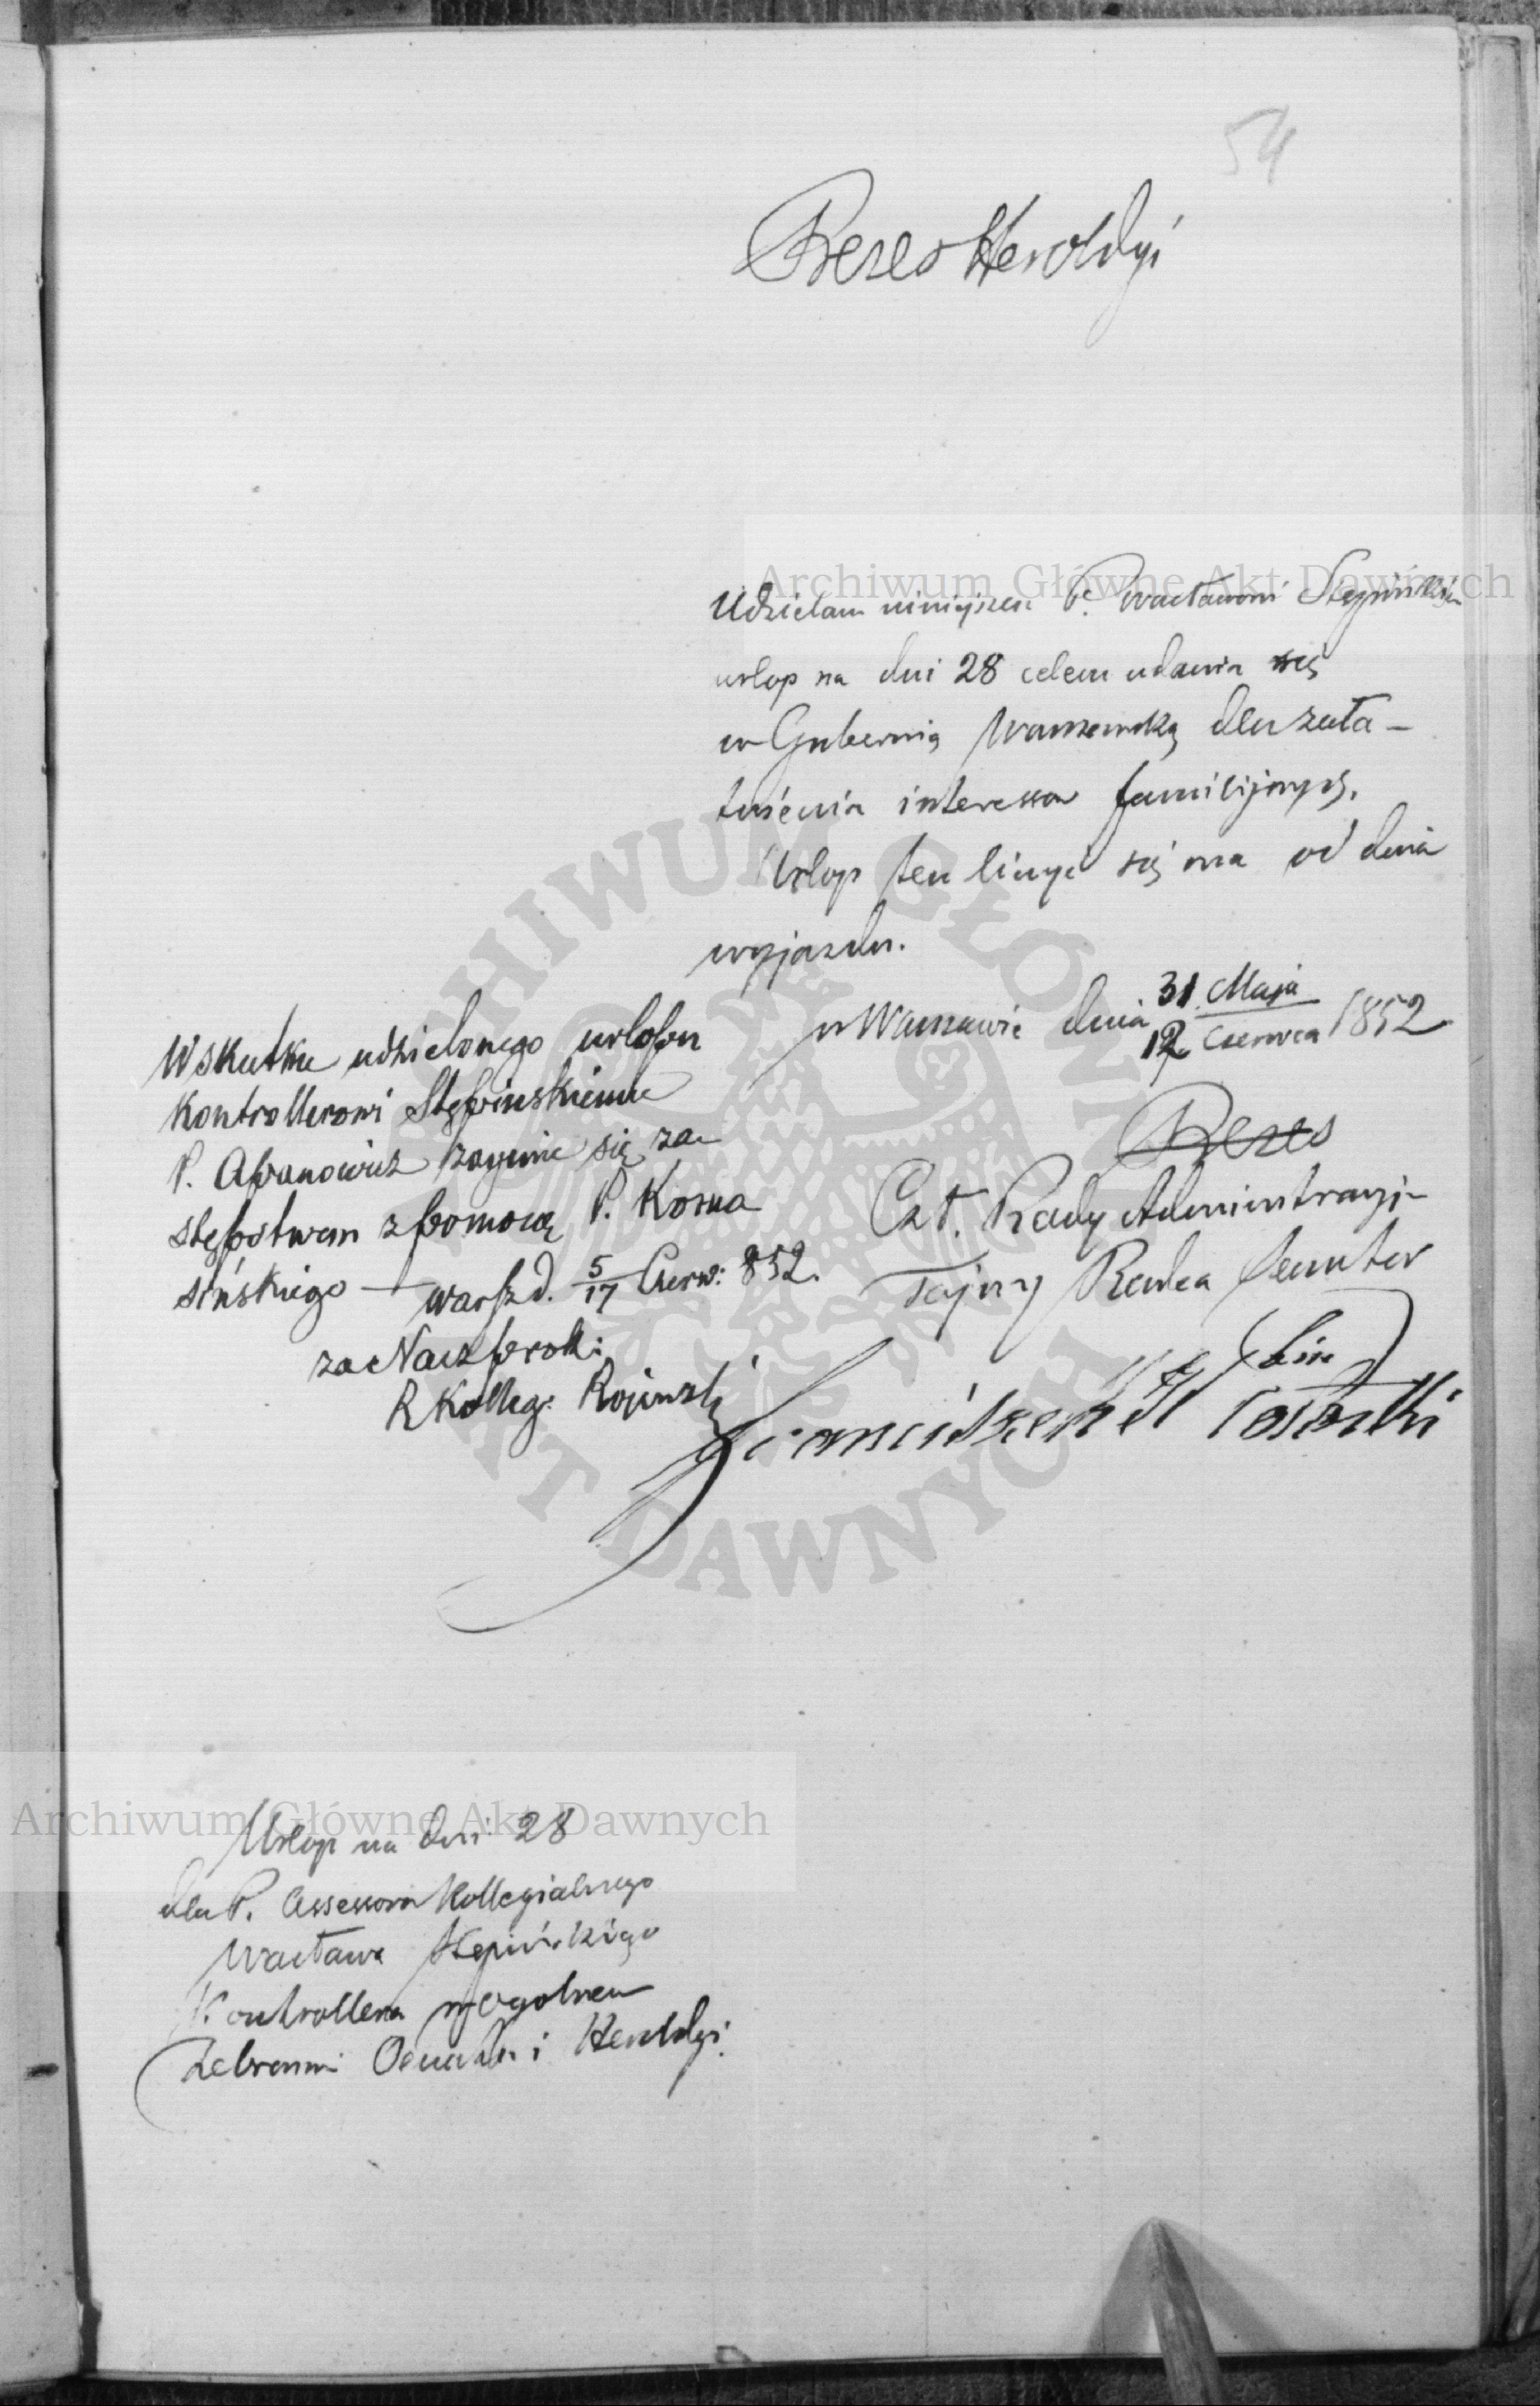 54
Prezes Heroldyi
Udzielam niniejszem P. Wacławowi Stępińskiemu
urlop na dni 28 celem udania się
w Gubernią Warszawską dla zała-
twienia interessów familijnych.
Urlop ten liczyć się ma od dnia
wyjazdu.
w Warszawie dnia 31 Maja
12 Czerwca 1852
Prezes
Czł. Rady Administracyi
Tajny Radca Senator
Wskutku udzielonego urlopu
Kontrollerowi Stępińskiemu
P. Abramowicz zajmie się za-
stępstwem z pomocą P. Kosma
sińskiego — Warsz d. 5/17 Czerw: 852.
za Nacz
R Kolleg:
Franciszek
Urlop na dni 28
dla P. Assessora Kollegialnego
Wacława Stępińskiego
Kontrollera w Ogólnem
Zebraniu i Heroldyi.
Archiwum Główne Akt Dawnych
Archiwum Główne Akt Dawnych
ARCHIWUM GŁÓWNE AKT DAWNYCH